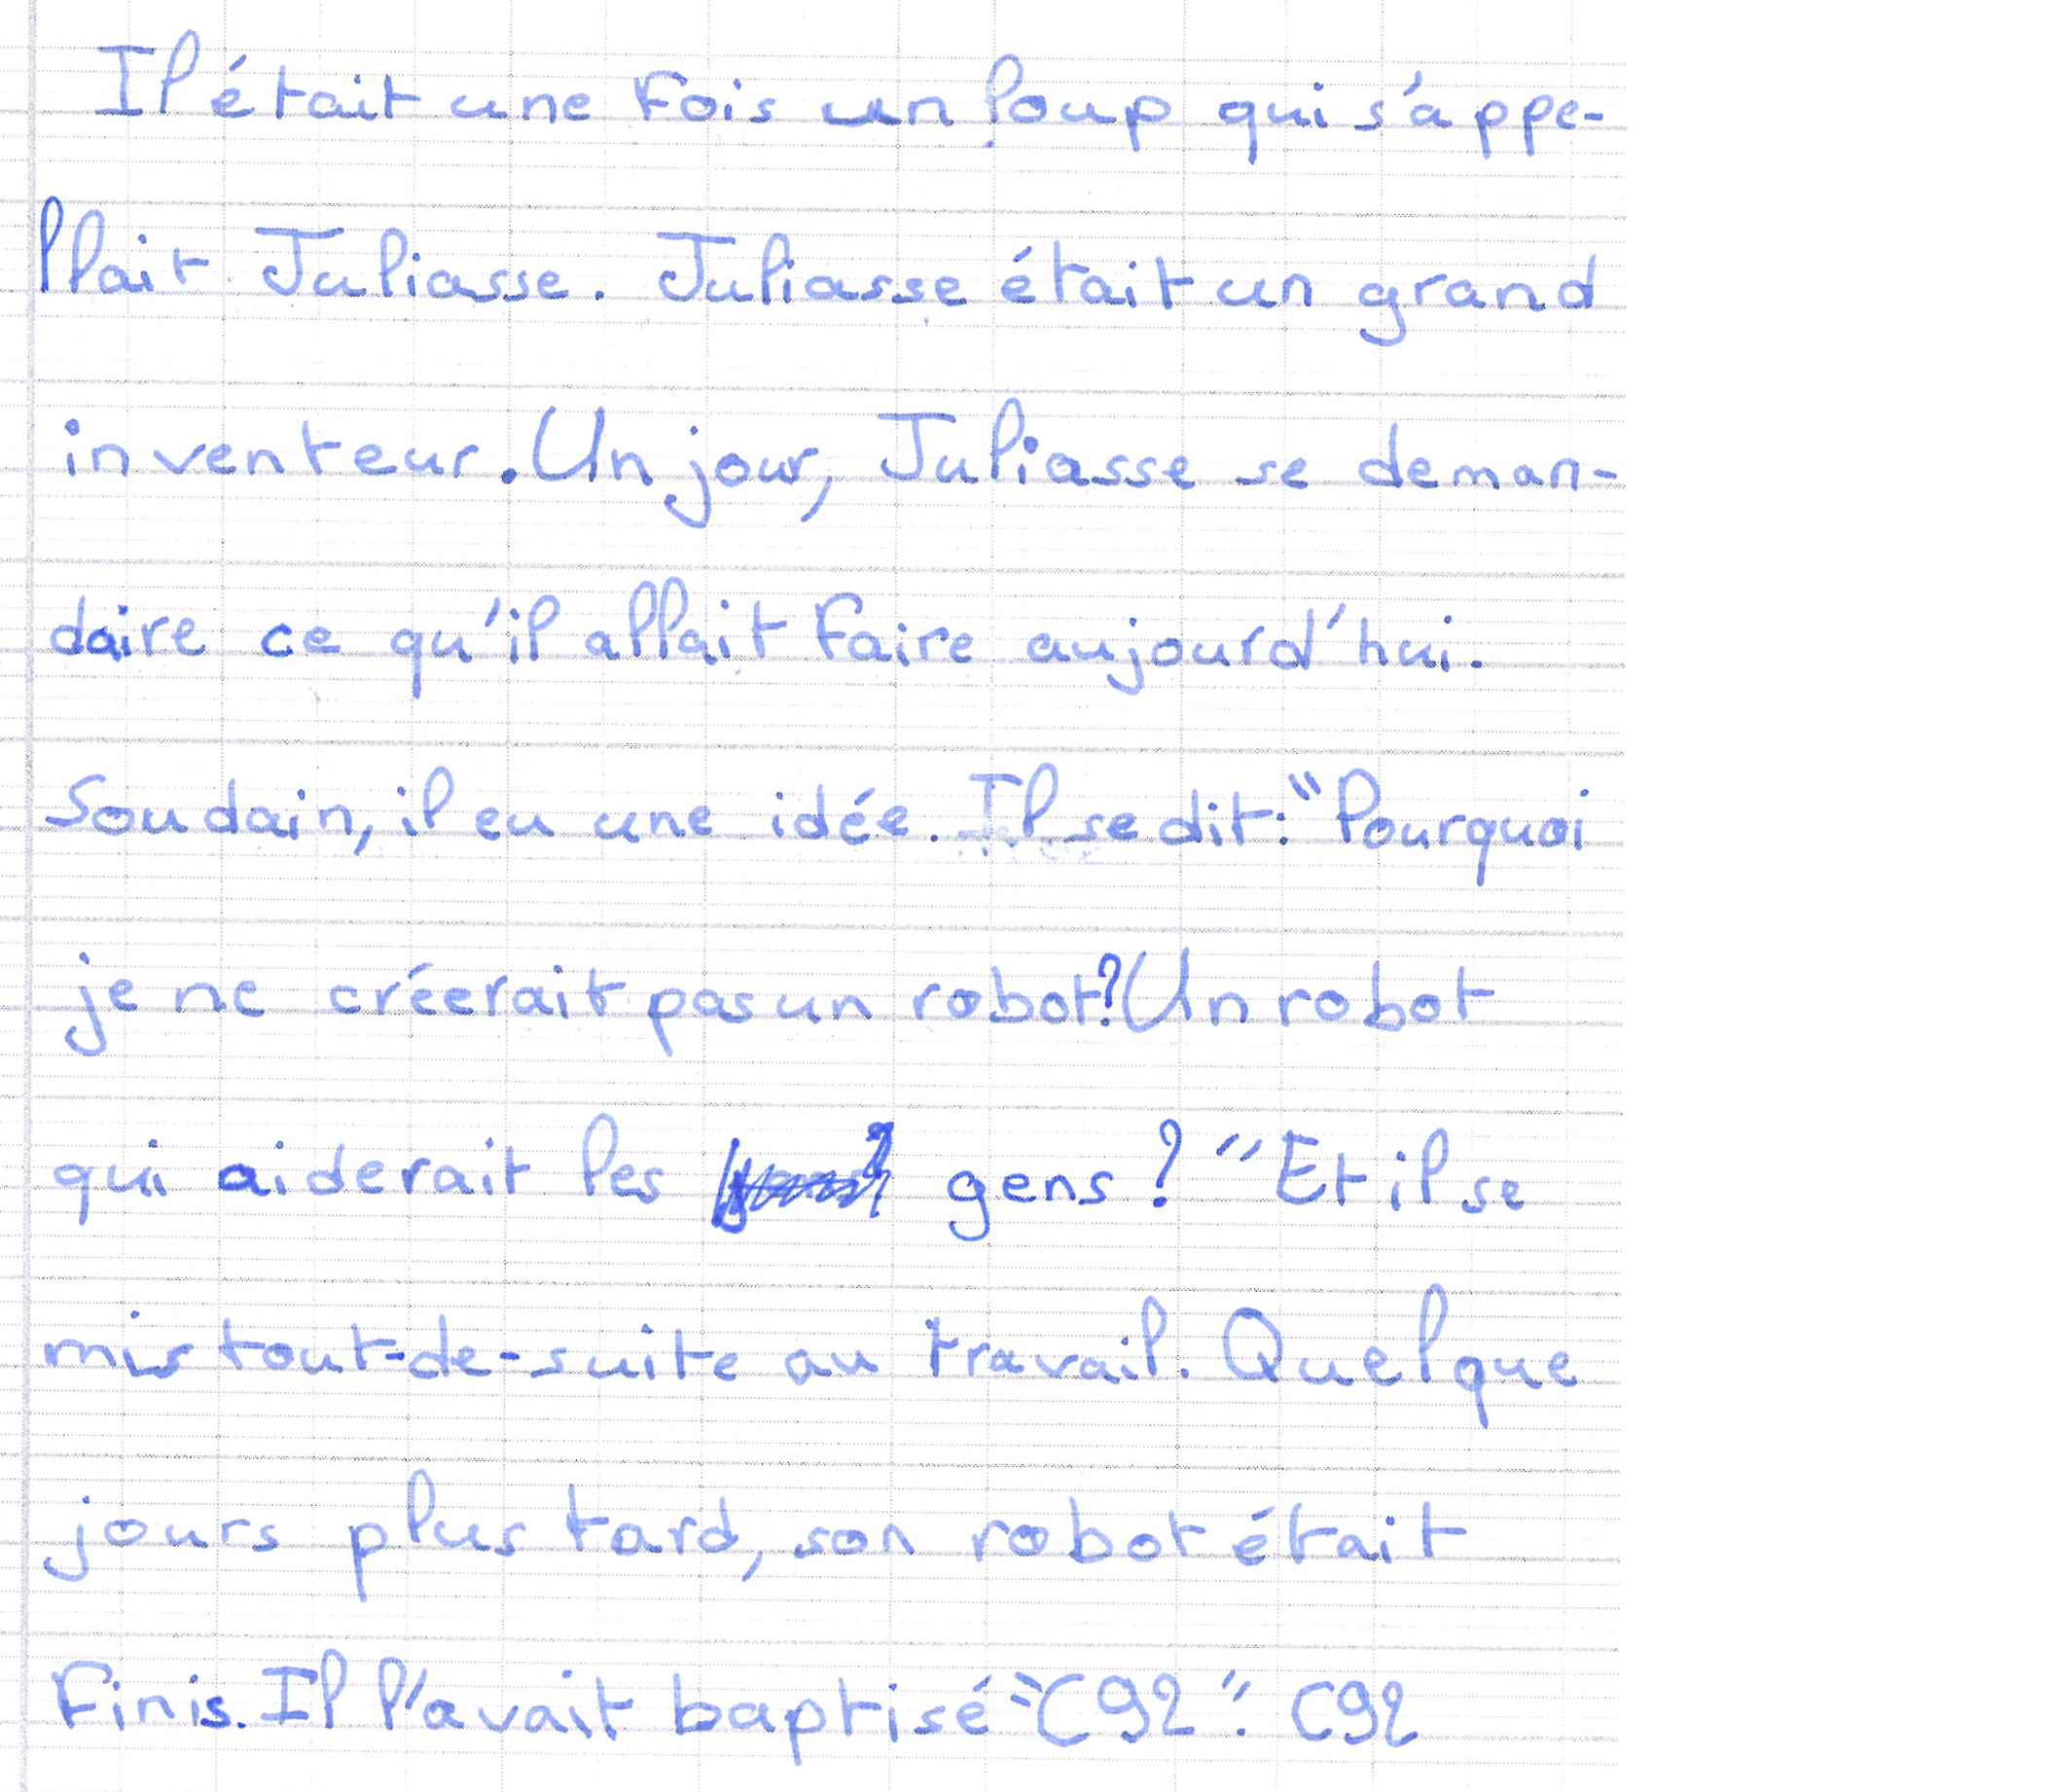 Il était une fois un loup qui s'appe-
llait Juliasse. Juliasse était un grand
inventeur. Un jour, Juliasse se deman-
daire ce qu'il allait faire aujourd'hui.
Soudain, il eu une idée. Il se dit : "Pourquoi
je ne créerait pas un robot ? Un robot
qui aiderait les gens ? " Et il se
mis tout-de-suite au travail. Quelque
jours plus tard, son robot était
finis. Il l'avait baptisé "C92". C92